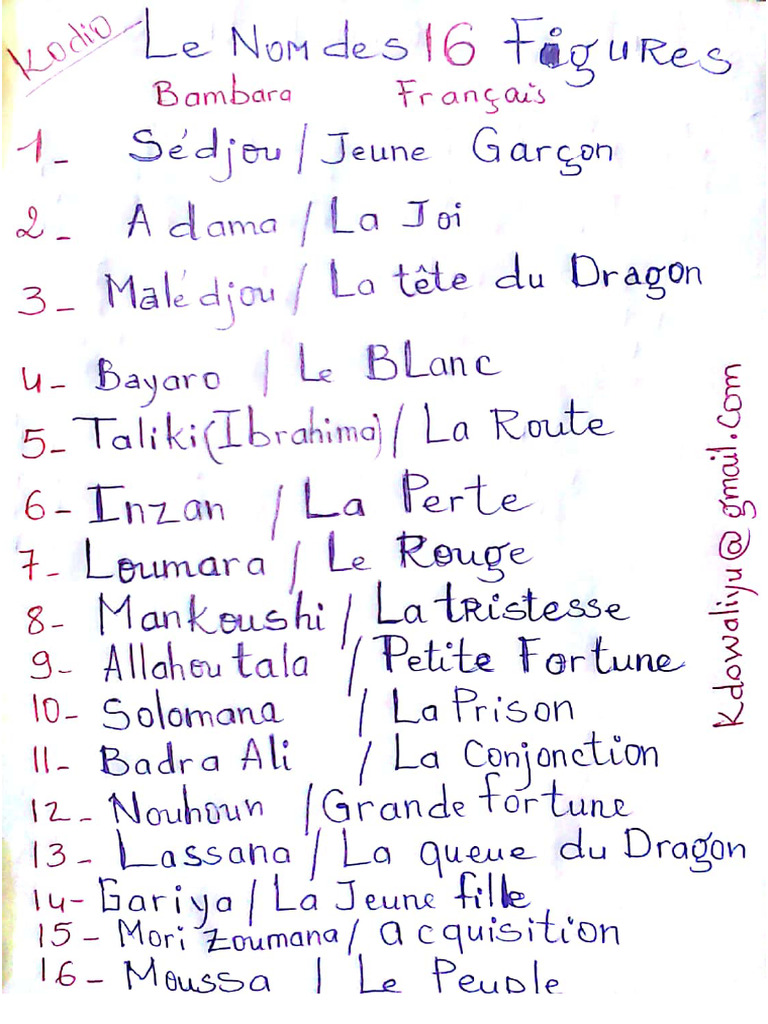 Kodio
Le Nom des 16 Figures
Bambara Français
1- Sédjou / Jeune Garçon
2- Adama / La Joi
3- Malédjou / La tête du Dragon
4- Bayaro / Le Blanc
5- Taliki (Ibrahima) / La Route
6- Inzan / La Perte
7- Loumara / Le Rouge
8- Mankoushi / La tristesse
9- Allahou tala / Petite Fortune
10- Solomana / La Prison
11- Badra Ali / La Conjonction
12- Nouhoun / Grande fortune
13- Lassana / La queue du Dragon
14- Gariya / La Jeune fille
15- Mori Zoumana / acquisition
16- Moussa / Le Peuple
Kdowaliyu@gmail.com